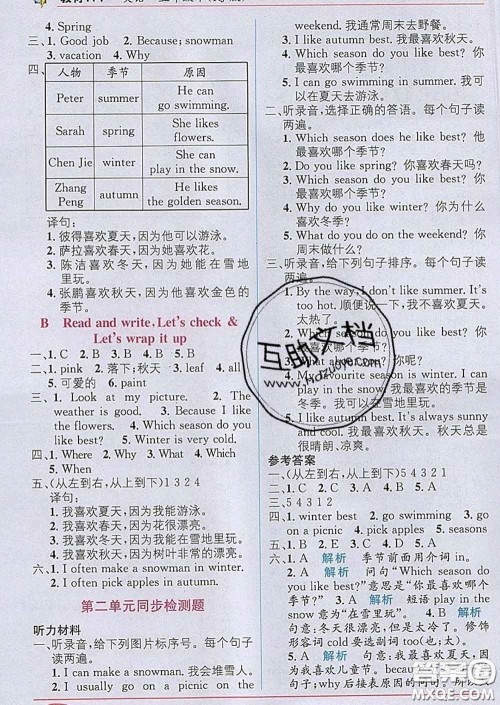 4. Spring
三、1. Good job  2. Because; snowman
3. vacation  4. Why
四、
人物 季节 原因
Peter summer He can go swimming.
Sarah spring She likes flowers.
Chen Jie winter She can play in the snow.
Zhang Peng autumn He likes the golden season.
译句:
1. 彼得喜欢夏天,因为他可以游泳。
2. 萨拉喜欢春天,因为她喜欢花。
3. 陈洁喜欢冬天,因为她能在雪地里玩。
4. 张鹏喜欢秋天,因为他喜欢金色的季节。
B Read and write, Let's check &
Let's wrap it up
一、1. C  2. B  3. B  4. B  5. B
二、1. pink  2. 落下;秋天  3. leaf  4. all
5. 可爱的  6. paint
三、1. Look at my picture.  2. The weather is good.  3. Because of the beautiful flowers.  4. Which season do you like best?  5. Winter is very cold.
四、1. Where  2. Why  3. What  4. Which
5. When
五、(从左到右,从上到下)1 3 2 4
译句:
1. 我喜欢夏天,因为我能游泳。
2. 我喜欢春天,因为花很漂亮。
3. 我喜欢冬天,因为我能在雪地里玩。
4. 我喜欢秋天,因为树叶非常的漂亮。
六、1. I often make a snowman in winter.
2. I often pick apples in autumn.
第二单元同步检测题
听力材料
一、听录音,给下列图片标序号。每个句子读两遍。
1. I can make a snowman. 我会堆雪人。
2. I usually go on a picnic on the
weekend. 我通常周末去野餐。
3. I like autumn best. 我最喜欢秋天。
4. Which season do you like best? 你最喜欢哪个季节?
5. I can go swimming in summer. 我可以在夏天去游泳。
二、听录音,选择正确的答语。每个句子读两遍。
1. Which season does he like best? 他最喜欢哪个季节?
2. Do you like spring? 你喜欢春天吗?
3. Which season do you like best? 你最喜欢哪个季节?
4. Why do you like winter? 你为什么喜欢冬天?
5. What do you do on the weekend? 你周末做什么?
三、听录音,给下列句子排序。每个句子读两遍。
1. By the way, I don't like summer. It's too hot. 顺便说一下,我不喜欢夏天。太热了。
snow. 我最喜欢的季节是冬天。我可以在雪地里玩。
5. I like autumn best. It's always sunny and cool. 我最喜欢秋天。秋天总是很晴朗、凉爽。
参考答案
一、(从左到右,从上到下)5 4 3 2 1
二、1. C  2. A  3. C  4. B  5. A
三、5 4 3 1 2
四、1. winter best  2. go to school  3. all
4. go on a picnic  5. pick apples  6. seasons
五、1. B  2. E  3. C  4. D  5. A
六、1. A 解析 季节前面用介词 in。
2. C 解析 问句“Which season do you like best?”意思是“你最喜欢哪个季节?”
3. A 解析 短语 play in the snow 意为“在雪地里玩”。
4. B 解析 句意:冬天很漂亮,但是太冷。修饰形容词 cold 要选副词 too(也;太)。
5. B 解析 句意:你为什么喜欢春天?;why 后接表原因的问句。所以
互助文档